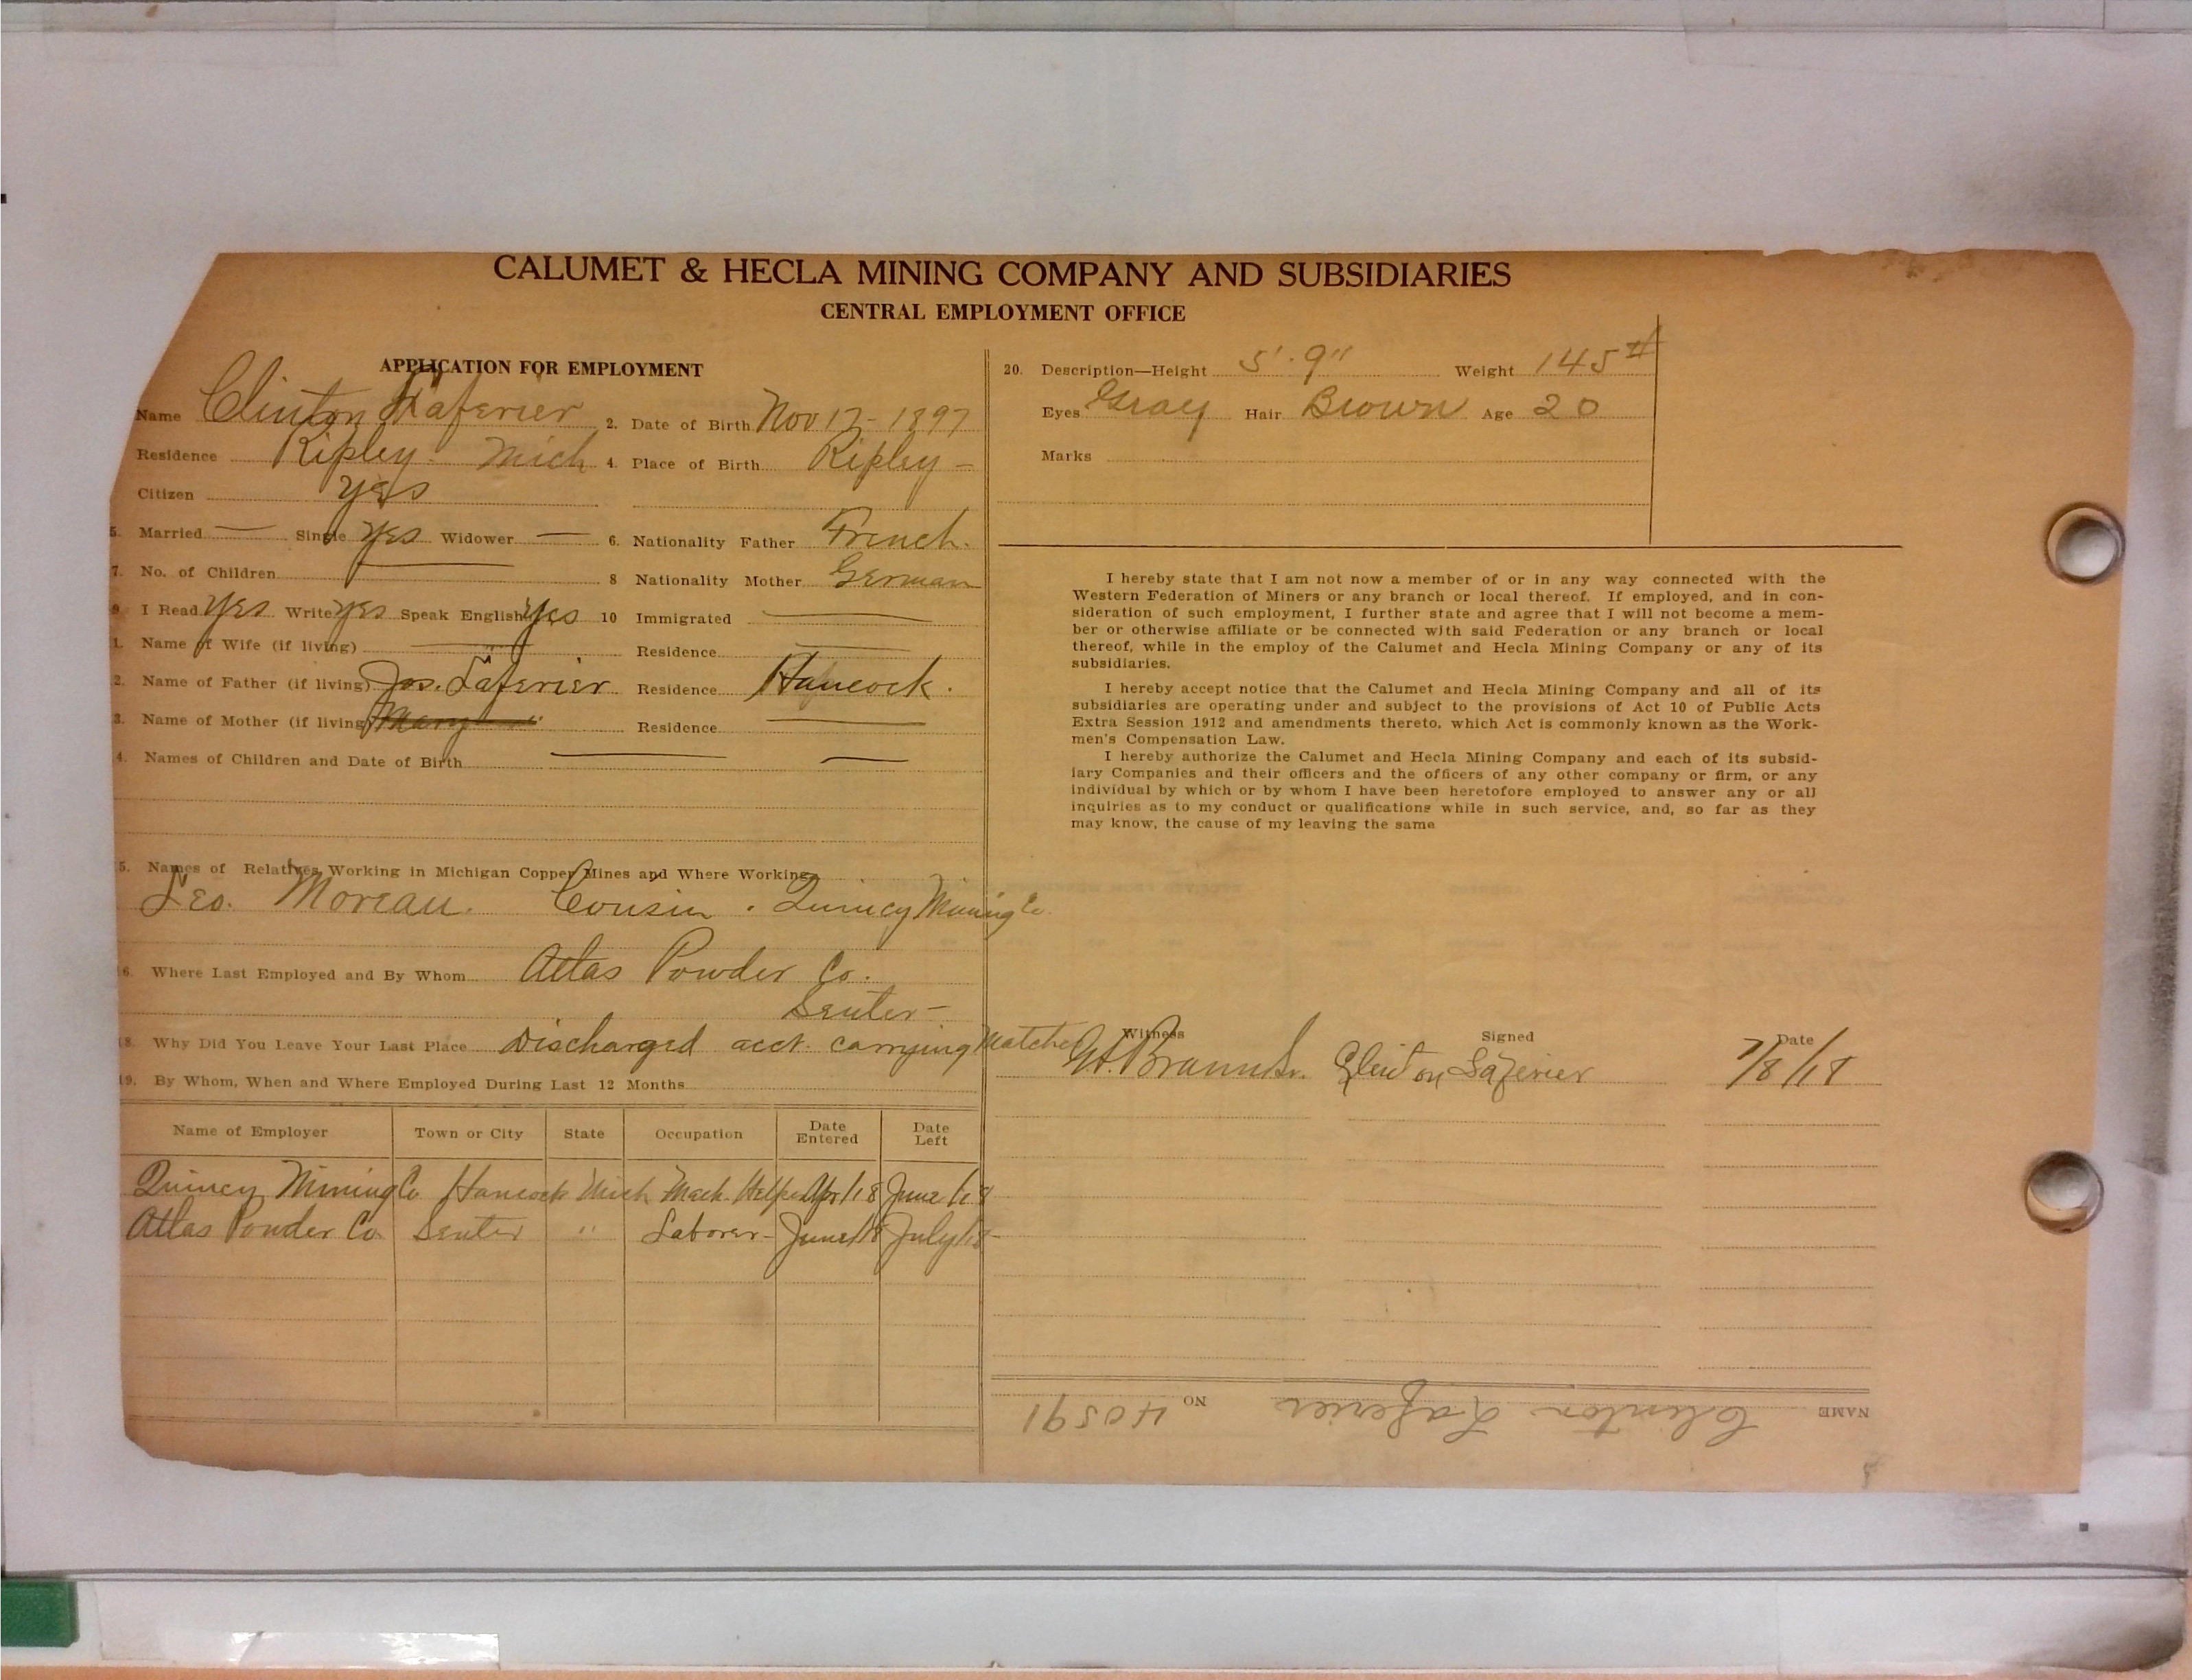 CALUMET & HECLA MINING COMPANY AND SUBSIDIARIES
CENTRAL EMPLOYMENT OFFICE
APPLICATION FOR EMPLOYMENT
Name Clinton Laferier 2. Date of Birth Nov 17 - 1897
Residence Ripley Mich 4. Place of Birth Ripley -
Citizen yes
5. Married — Single yes Widower — 6. Nationality Father French.
7. No. of Children — 8 Nationality Mother German
9. I Read Yes Write yes Speak English Yes 10 Immigrated —
1. Name of Wife (if living) — Residence —
2. Name of Father (if living) Jos. Laferier Residence Hancock.
3. Name of Mother (if living) Mary Residence —
4. Names of Children and Date of Birth — —
5. Names of Relatives Working in Michigan Copper Mines and Where Working
Leo. Moreau. Cousin. Quincy Mining Co.
16. Where Last Employed and By Whom Atlas Powder Co.
Senter -
18. Why Did You Leave Your Last Place Discharged acct. carrying Matches
19. By Whom, When and Where Employed During Last 12 Months
Name of Employer Town or City State Occupation Date Entered Date Left
Quincy Mining Co Hancock Mich Mach. Helper Apr/18 June/18
Atlas Powder Co. Senter " Laborer - June/18 July/18 -
20. Description—Height 5'. 9" Weight 145 #
Eyes Gray Hair Brown Age 20
Marks
I hereby state that I am not now a member of or in any way connected with the
Western Federation of Miners or any branch or local thereof. If employed, and in con-
sideration of such employment, I further state and agree that I will not become a mem-
ber or otherwise affiliate or be connected with said Federation or any branch or local
thereof, while in the employ of the Calumet and Hecla Mining Company or any of its
subsidiaries.
I hereby accept notice that the Calumet and Hecla Mining Company and all of its
subsidiaries are operating under and subject to the provisions of Act 10 of Public Acts
Extra Session 1912 and amendments thereto, which Act is commonly known as the Work-
men's Compensation Law.
I hereby authorize the Calumet and Hecla Mining Company and each of its subsid-
iary Companies and their officers and the officers of any other company or firm, or any
individual by which or by whom I have been heretofore employed to answer any or all
inquiries as to my conduct or qualifications while in such service, and, so far as they
may know, the cause of my leaving the same
Witness Signed Date
Clinton Laferier 7/8/18
NAME Clinton Laferier NO 40591